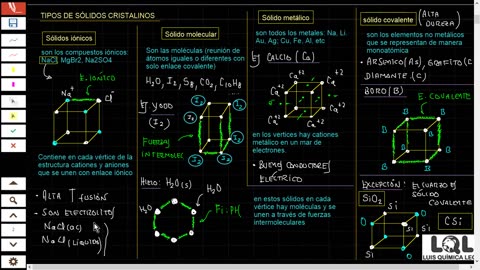 TIPOS DE SÓLIDOS CRISTALINOS
Sólidos iónicos
son los compuestos iónicos:
NaCl, MgBr2, Na2SO4
E. IÓNICO
Na+
Cl-
Contiene en cada vértice de la
estructura cationes y aniones
que se unen con enlace iónico
• ALTA T fusión
• SON ELECTROLITOS
NaCl(ac)
NaCl(LIQUIDO)
Sólido molecular
Son las moléculas (reunión de
átomos iguales o diferentes con
solo enlace covalente)
H2O, I2, S8, CO2, C10H8
Ej YODO
(I2)
I2
I2
I2
I2
I2
FUERZAS
INTERMOLEC
HIELO: H2O(s)
H2O
H2O
F.i. PH
Sólido metálico
son todos los metales: Na, Li,
Au, Ag; Cu, Fe, Al, etc
Ej CALCIO (Ca)
Ca+2
Ca+2
Ca+2
Ca+2
en los vertices hay cationes
metálico en un mar de
electrones.
• BUENOS CONDUCTORES
ELÉCTRICO
en estos sólidos en cada
vértice hay moléculas y se
unen a través de fuerzas
intermoleculares
sólido covalente
(ALTA
DUREZA)
son los elementos no metálicos
que se representan de manera
monoatómica
• ARSENICO(As), GRAFITO(C)
DIAMANTE(C)
BORO(B)
E. COVALENTE
B
B
B
B
B
B
EXCEPCIÓN:
EL CUARZO ES
SÓLIDO
COVALENTE
SiO2
Si
O
Si
O
Si
O
Si
CSi
LQL
LUIS QUÍMICA LEO